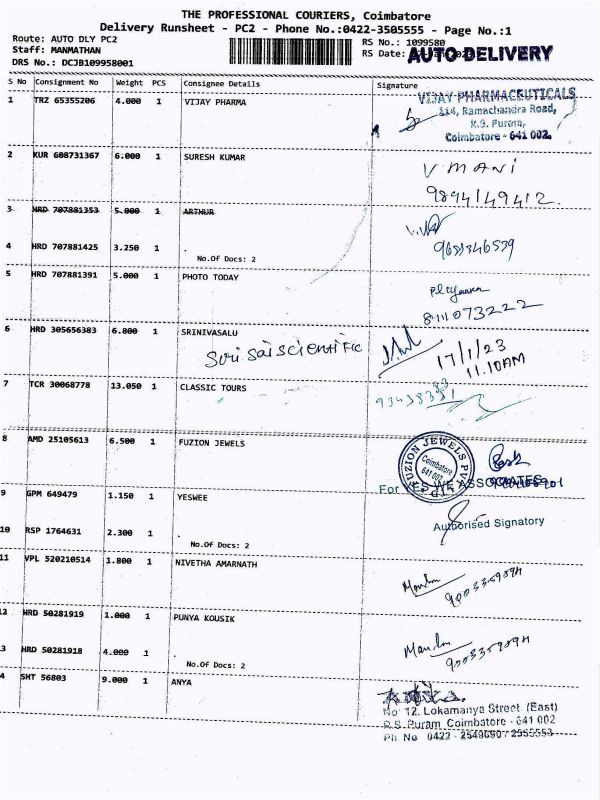 THE PROFESSIONAL COURIERS, Coimbatore
Delivery Runsheet - PC2 - Phone No.:0422-3505555 - Page No.:1
Route: AUTO DLY PC2
RS No.: 1099580
Staff: MANMATHAN
RS Date:
AUTO DELIVERY
DRS No.: DCJB109958001
S No Consignment No Weight PCS Consignee Details Signature
1 TRZ 65355206 4.000 1 VIJAY PHARMA
VIJAY PHARMACEUTICALS
114, Ramachandra Road,
R.S. Puram,
Coimbatore - 641 002.
2 KUR 608731367 6.000 1 SURESH KUMAR
V MANI
9894149412.
3 HRD 707881353 5.000 1 ARTHUR
4 HRD 707881425 3.250 1 .
No.Of Docs: 2
9659346539
5 HRD 707881391 5.000 1 PHOTO TODAY
8111073222
6 HRD 305656383 6.800 1 SRINIVASALU
Sri Sai Scientific
17/1/23
11.10AM
7 TCR 30068778 13.050 1 CLASSIC TOURS
8 AMD 25105613 6.500 1 FUZION JEWELS
FUZION JEWELS PVT LTD
Coimbatore
641 002
For
ASSOCIATES
9 GPM 649479 1.150 1 YESWEE
Authorised Signatory
10 RSP 1764631 2.300 1 .
No.Of Docs: 2
11 VPL 520210514 1.800 1 NIVETHA AMARNATH
12 HRD 50281919 1.000 1 PUNYA KOUSIK
3 HRD 50281918 4.000 1 .
No.Of Docs: 2
4 SHT 56803 9.000 1 ANYA
No 12. Lokamanya Street (East)
R.S. Puram, Coimbatore - 641 002
Ph. No 0422 - 2549690 / 2555553